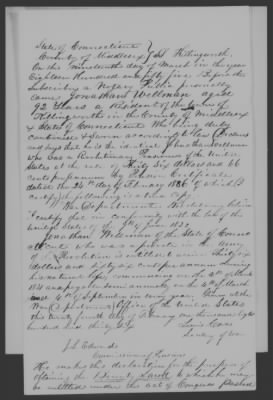 State of Connecticut
County of Middlesex } SS Killingworth.
On the nineteenth day of March in the year
Eighteen Hundred and fifty five before the
subscriber a Notary Public personally
came Jonathan Wellman aged
92 Years a Resident of the town of
Killingworth in the County of Middlesex
& State of Connecticut Who being duly
Sworn according to law Declares
and says that he is the identical Jonathan Wellman
who was a Revolutionary Pensioner of the United
States at the rate of Thirty Six dollars and 66
cents per annum by Pension Certificate
dated the 24th day of February
certify following is a true copy
War Department Revolutionary Claim
I certify that in conformity with the law of the
United States of the 7th of June 1832
Jonathan Wellman of the State of Connect
icut who was a private in the Army
of the Revolution is entitled to receive Thirty six
dollars and sixty six cents per annum during
his natural life, commencing on the 4th of March
1831 and payable semi annually on the 4th of March
and 4th of September in every year. Given at the
War Office of the United States
this twenty fourth day of one thousand eight
hundred and thirty
Lewis Cass
Secretary of War
J L Edwards
Commissioner of Pensions
He makes this declaration for the purpose of
obtaining the Bounty Land to which he may
be entitled under the act of Congress Passed